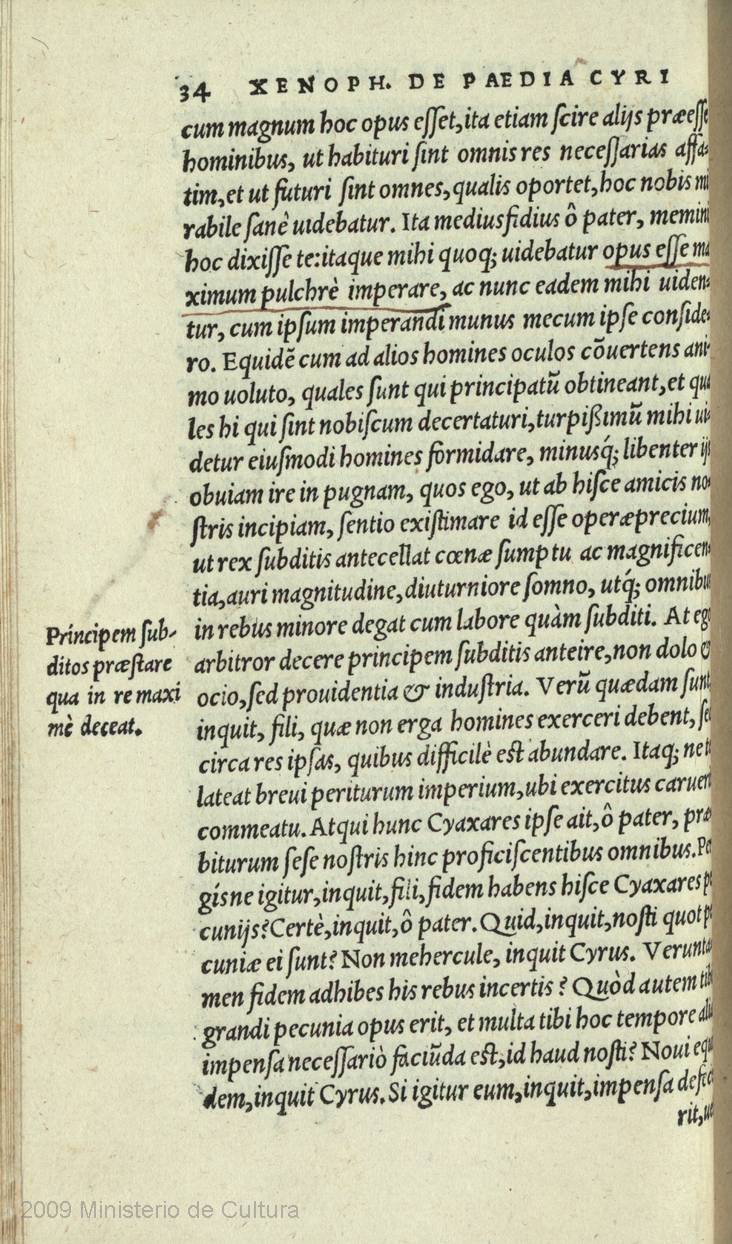 34 XENOPH. DE PAEDIA CYRI
cum magnum hoc opus eſſet, ita etiam ſcire alijs præeſſe
hominibus, ut habituri ſint omnis res neceſſarias affa-
tim, et ut futuri ſint omnes, qualis oportet, hoc nobis mi
rabile ſanè uidebatur. Ita mediusfidius ô pater, memini
hoc dixiſſe te: itaque mihi quoq; uidebatur opus eſſe ma
ximum pulchrè imperare, ac nunc eadem mihi uiden-
tur, cum ipſum imperandi munus mecum ipſe conſide-
ro. Equidẽ cum ad alios homines oculos cõuertens ani-
mo uoluto, quales ſunt qui principatũ obtineant, et qua
les hi qui ſint nobiſcum decertaturi, turpißimũ mihi ui-
detur eiuſmodi homines formidare, minusq́; libenter ijs
obuiam ire in pugnam, quos ego, ut ab hiſce amicis no-
ſtris incipiam, ſentio exiſtimare id eſſe operæprecium,
ut rex ſubditis antecellat cœnæ ſumptu ac magnificen-
tia, auri magnitudine, diuturniore ſomno, utq́; omnibus
in rebus minore degat cum labore quàm ſubditi. At ego
arbitror decere principem ſubditis anteire, non dolo &
ocio, ſed prouidentia & induſtria. Verũ quædam ſunt,
inquit, fili, quæ non erga homines exerceri debent, ſed
circa res ipſas, quibus difficilè eſt abundare. Itaq; ne te
lateat breui periturum imperium, ubi exercitus caruerit
commeatu. Atqui hunc Cyaxares ipſe ait, ô pater, præ
biturum ſeſe noſtris hinc proficiſcentibus omnibus. Per
gísne igitur, inquit, fili, fidem habens hiſce Cyaxares pe
cunijs? Certè, inquit, ô pater. Quid, inquit, noſti quot pe
cuniæ ei ſunt? Non mehercule, inquit Cyrus. Verunta
men fidem adhibes his rebus incertis? Quòd autem tibi
grandi pecunia opus erit, et multa tibi hoc tempore alia
impenſa neceſſariò faciũda eſt, id haud noſti? Noui equi
dem, inquit Cyrus. Si igitur eum, inquit, impenſa defece
rit, ue
Príncipem ſub-
ditos præſtare
qua in re maxi
mè deceat.
2009 Ministerio de Cultura